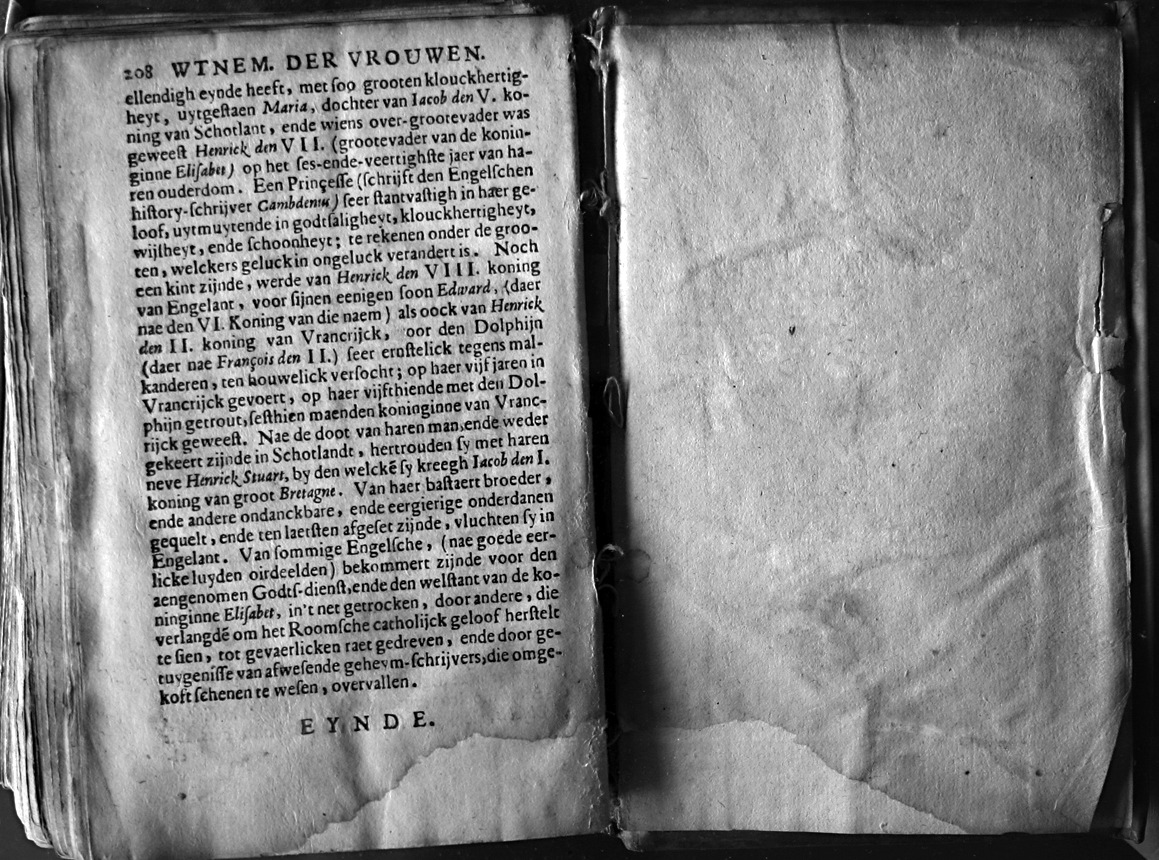 208 WTNEM. DER VROUWEN.
ellendigh eynde heeft, met ſoo grooten klouckhertig-
heyt, uytgeſtaen Maria, dochter van Iacob den V. ko-
ning van Schotlant, ende wiens over-grootevader was
geweeſt Henrick den VII. (grootevader van de konin-
ginne Eliſabet) op het ſes-ende-veertighſte jaer van ha-
ren ouderdom. Een Princeſſe (ſchrijft den Engelſchen
hiſtory-ſchrijver Cambdenus) ſeer ſtantvaſtigh in haer ge-
loof, uytmuytende in godtſaligheyt, klouckhertigheyt,
wijſheyt, ende ſchoonheyt; te rekenen onder de groo-
ten, welckers geluck in ongeluck verandert is. Noch
een kint zijnde, werde van Henrick den VIII. koning
van Engelant, voor ſijnen eenigen ſoon Edward, (daer
nae den VI. Koning van die naem) als oock van Henrick
den II. koning van Vrancrijck, oor den Dolphijn
(daer nae François den II.) ſeer ernſtelick tegens mal-
kanderen, ten houwelick verſocht; op haer vijf jaren in
Vrancrijck gevoert, op haer vijfthiende met den Dol-
phijn getrout, ſeſthien maenden koninginne van Vranc-
rijck geweeſt. Nae de doot van haren man, ende weder
gekeert zijnde in Schotlandt, hertrouden ſy met haren
neve Henrick Stuart, by den welckē ſy kreegh Iacob den I.
koning van groot Bretagne. Van haer baſtaert broeder,
ende andere ondanckbare, ende eergierige onderdanen
gequelt, ende ten laetſten afgeſet zijnde, vluchten ſy in
Engelant. Van ſommige Engelſche, (nae goede eer-
licke luyden oirdeelden) bekommert zijnde voor den
aengenomen Godtſ-dienſt, ende den welſtant van de ko-
ninginne Eliſabet, in't net getrocken, door andere, die
verlangdē om het Roomſche catholijck geloof herſtelt
te ſien, tot gevaerlicken raet gedreven, ende door ge-
tuygeniſſe van afweſende geheym-ſchrijvers, die omge-
koft ſchenen te weſen, overvallen.
EYNDE.